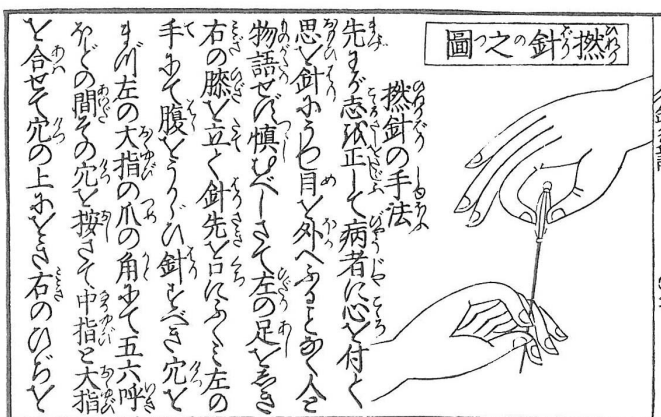 撚針之圖
撚針の手法
先わが志を正して病者に心を付て
思を針にうつし目を外へふることなく人と
物語せず慎むべしさて左の足をしき
右の膝を立て針先を口にふくみ左の
手にて腹をうかゞひ針すべき穴を
まづ左の大指の爪の角にて五六呼
ほどの間その穴を按さて中指と大指
を合せて穴の上にをき右のひぢを